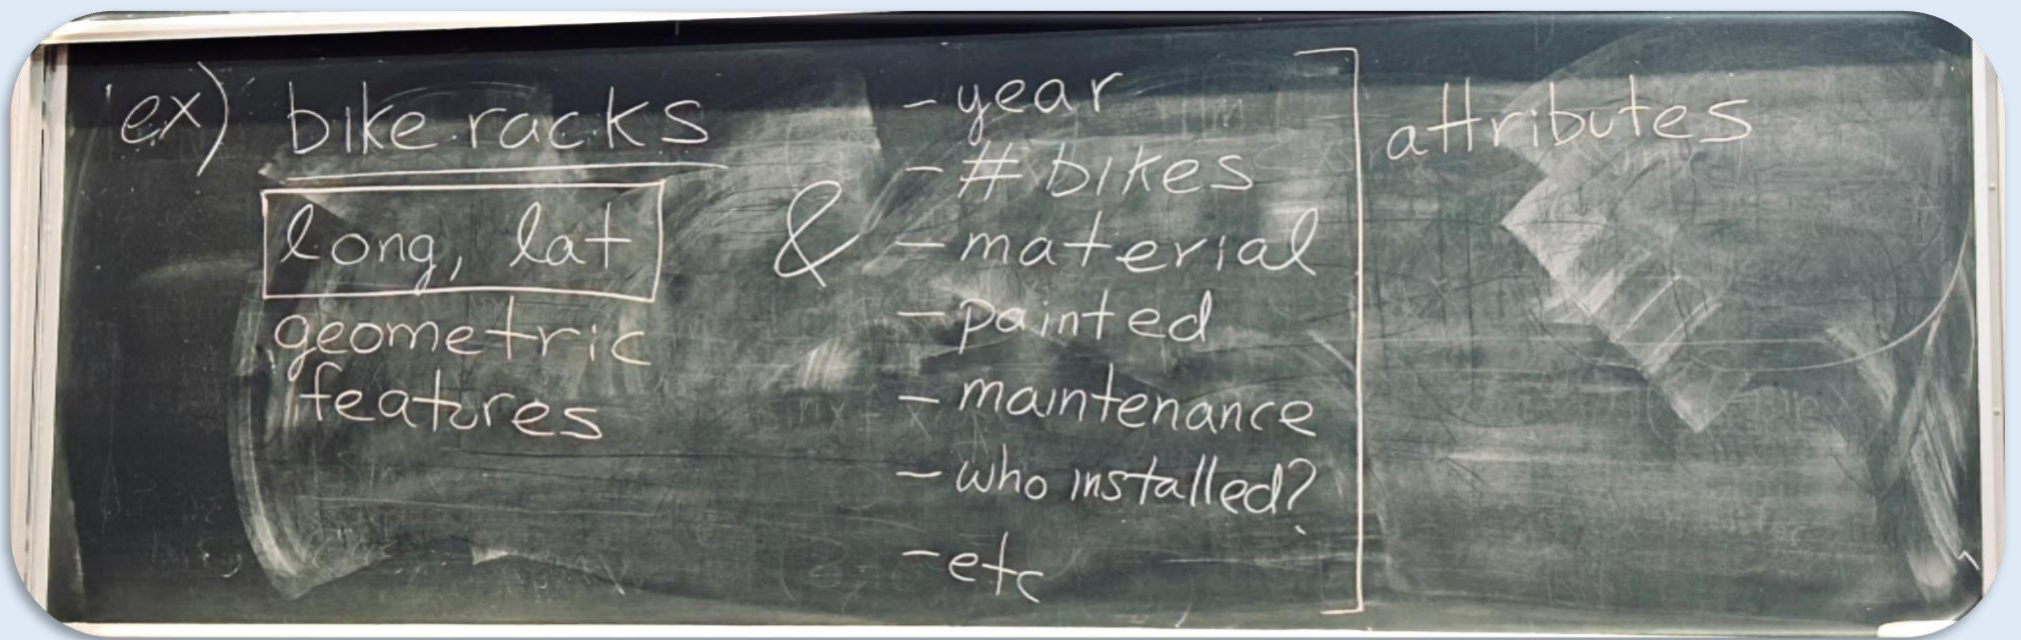 ex) bike racks
long, lat
geometric
features
&
- year
- # bikes
- material
- painted
- maintenance
- who installed?
- etc
attributes